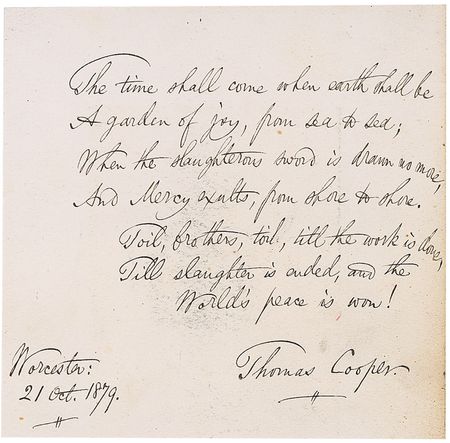 The time shall come when earth shall be
A garden of joy, from sea to sea;
When the slaughterous sword is drawn no more,
And Mercy exults, from shore to shore.
Toil, brothers, toil, till the work is done,
Till slaughter is ended, and the
World's peace is won!
Thomas Cooper.
Worcester:
21 Oct. 1879.